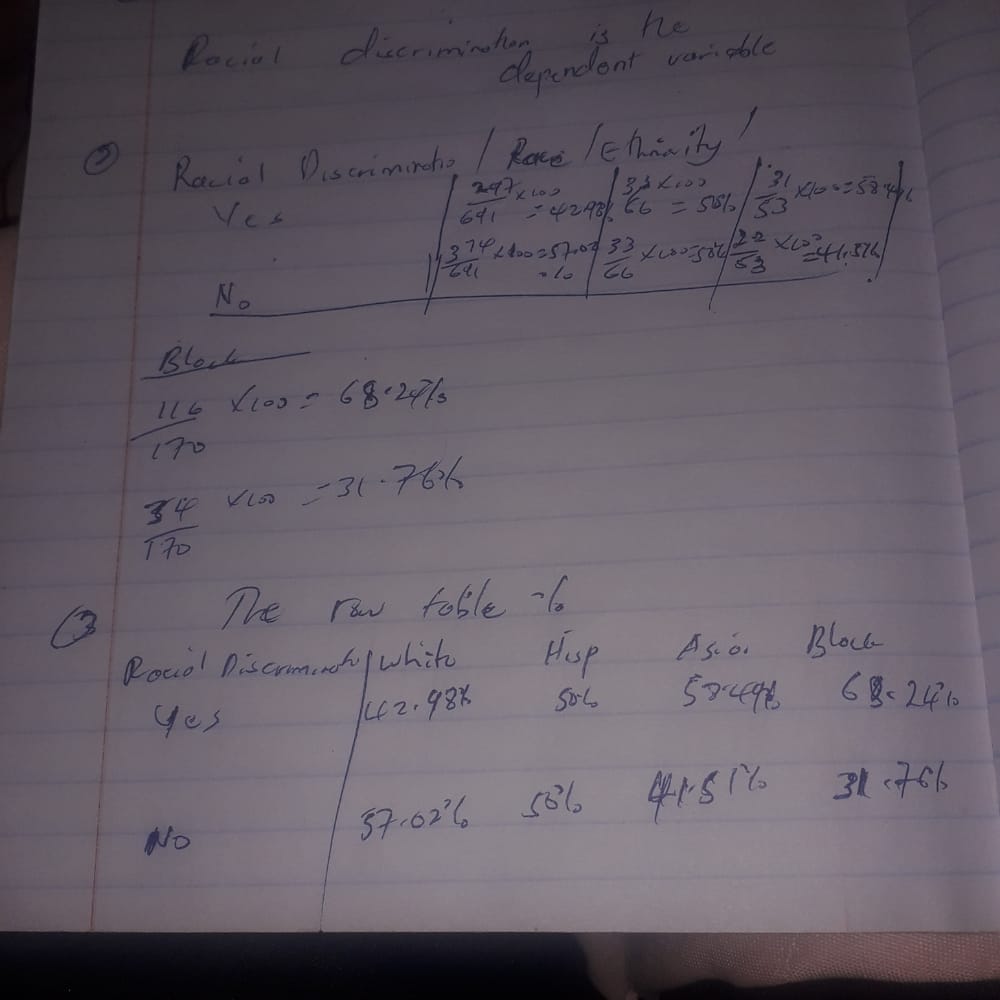 Racial discrimination is the
dependent variable
② Racial Discriminatio / Race / Ethnicity /
Yes x100 = 42.98% | 33 x100 = 50% | 31 x100 = 58.4 %
641 66 53
374 x100 = 57.02 % | 33 x100 = 50% | 22 x100 = 41.51%
641 66 53
No
Black
116 x100 = 68.24%
170
x100 = 31.76%
170
③ The row table %
Racial Discriminat White Hisp Asia. Black
Yes 42.98% 50% 58.49% 68.24%
No 57.02% 50% 41.51% 31.76%